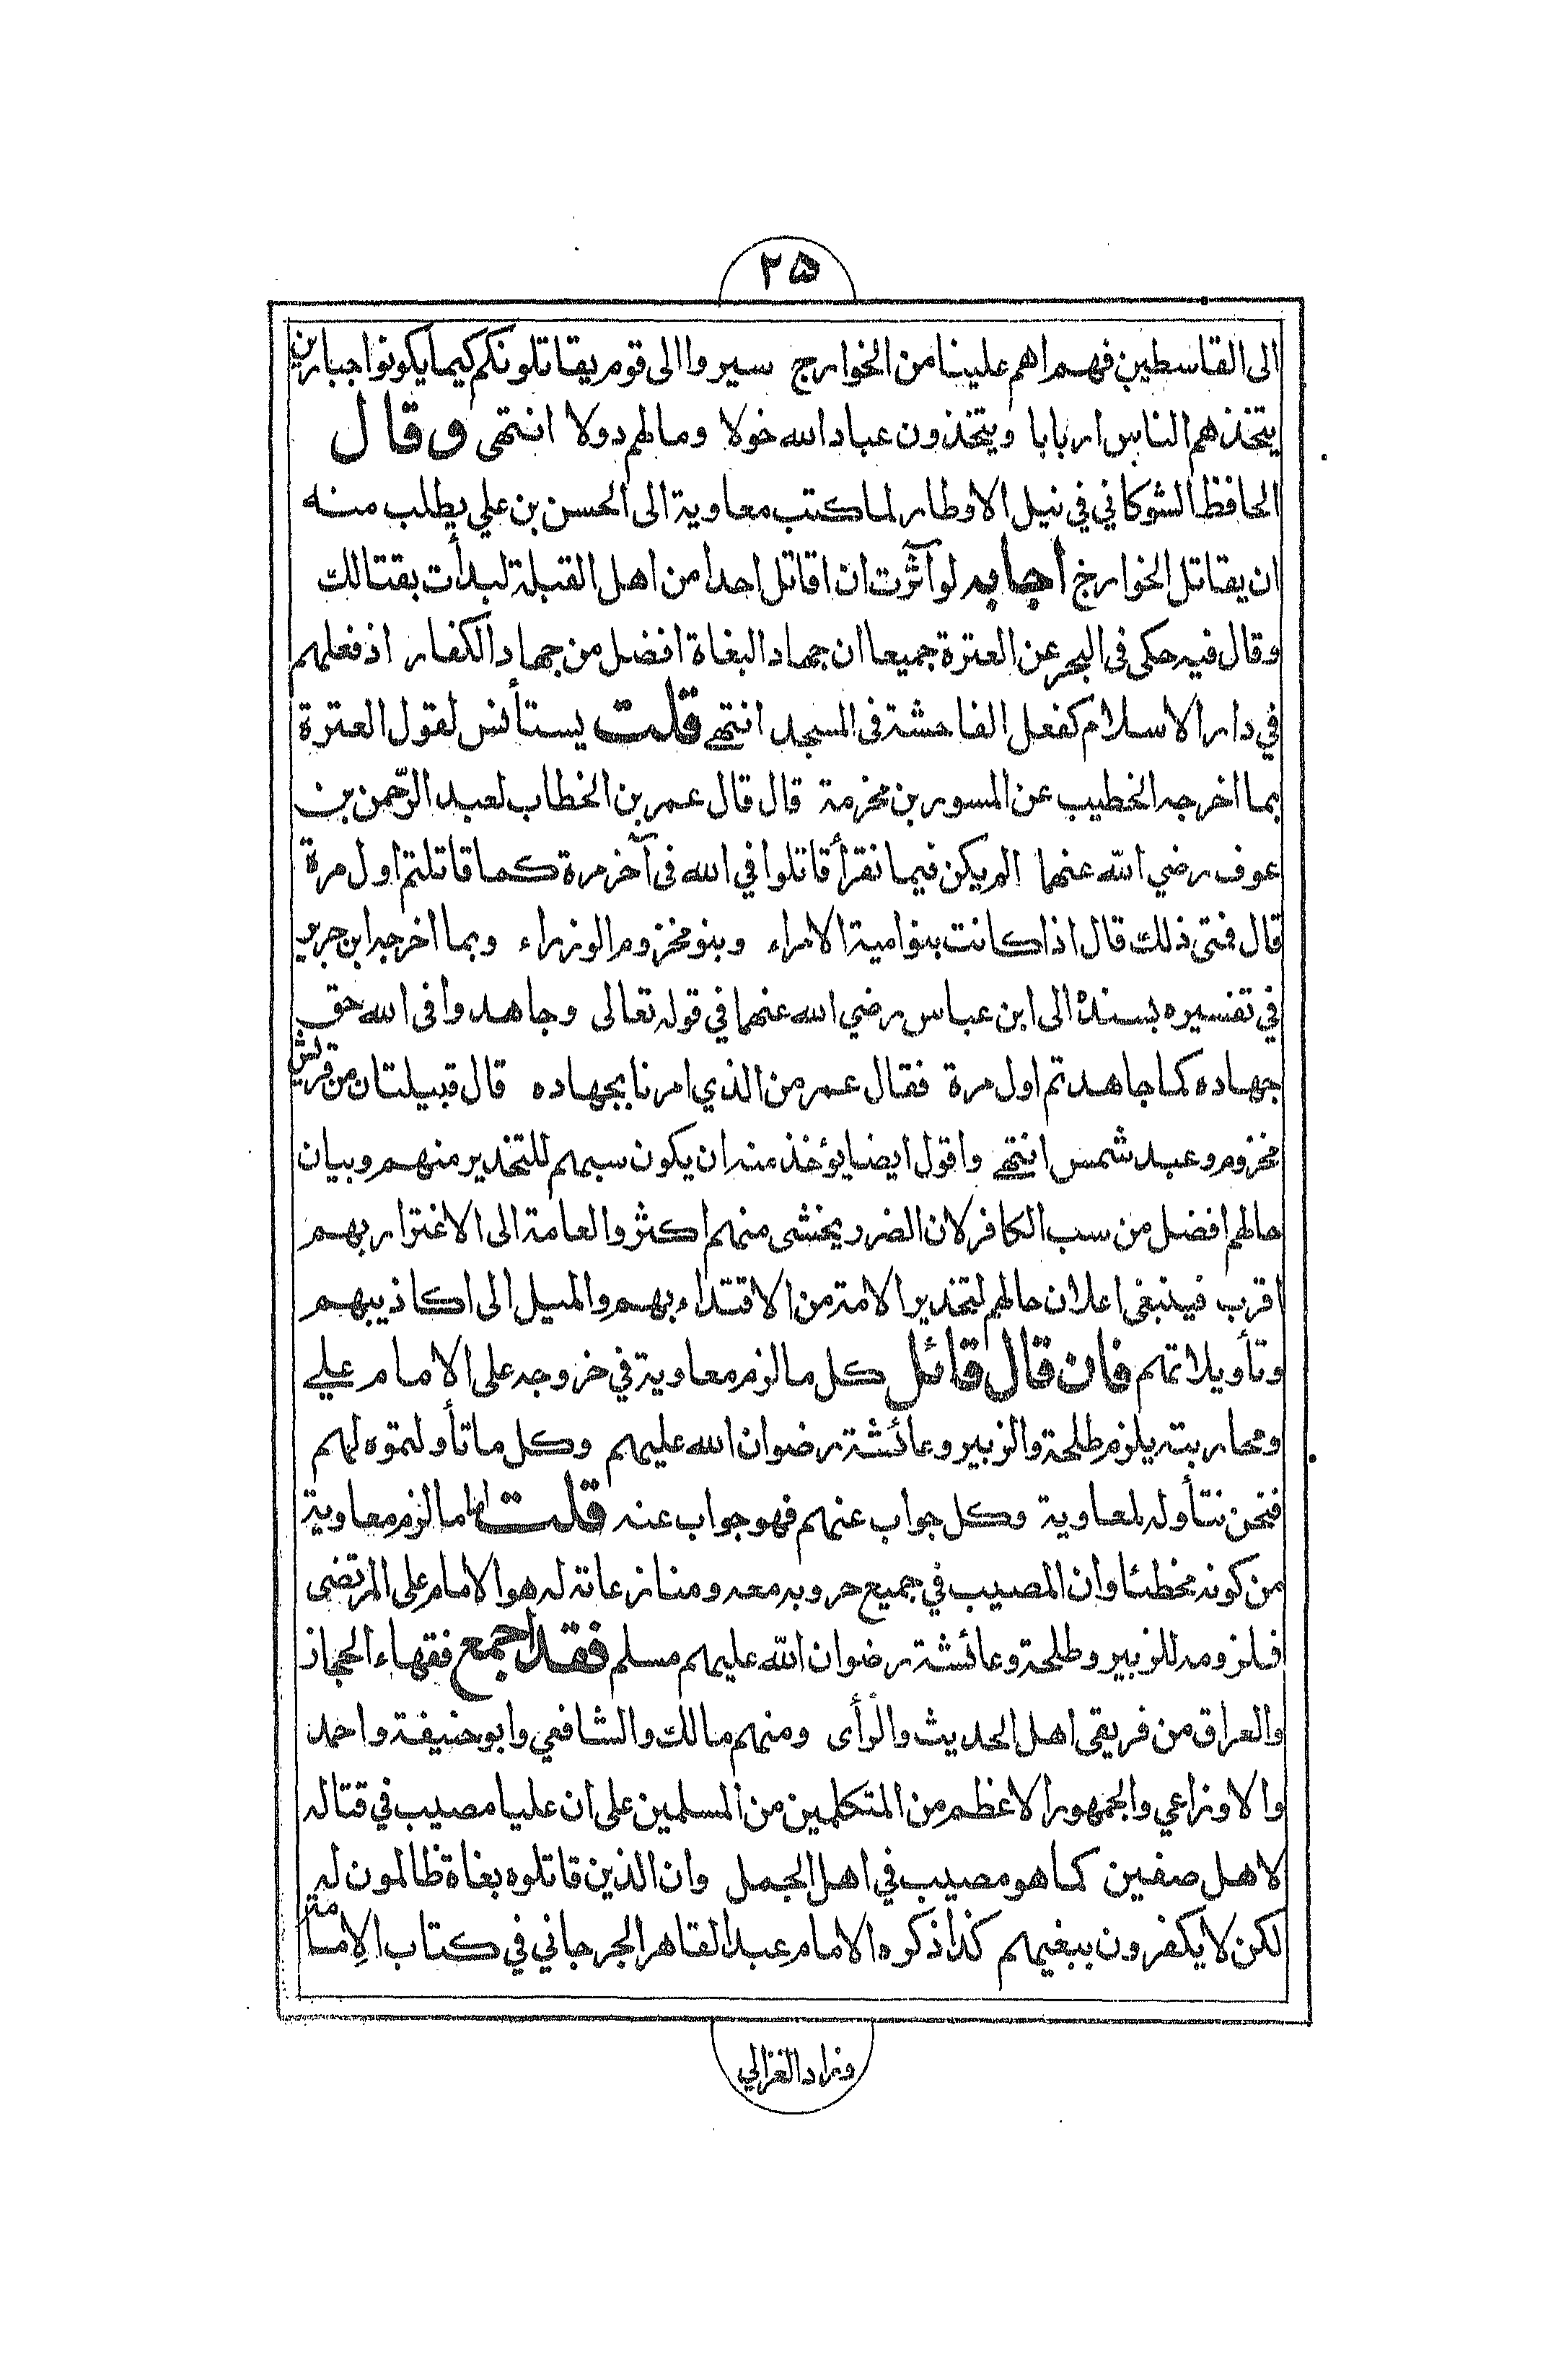 ٢٥
الى القاسطين فهم اهم علينا من الخوارج سيروا الى قوم يقاتلونكم كيما يكونوا جبارين
يتخذهم الناس اربابا ويتخذون عباد الله خولا ومالهم دولا انتهى وقال
الحافظ الشوكاني في نيل الاوطار لما كتب معاوية الى الحسن بن علي يطلب منه
ان يقاتل الخوارج اجابه لو آثرت ان اقاتل احدا من اهل القبلة لبدأت بقتالك
وقال فيه حكى فى البحر عن العترة جميعا ان جهاد البغاة افضل من جهاد الكفار اذ فعلهم
في دار الاسلام كفعل الفاحشة فى المسجد انتهى قلت يستأنس لقول العترة
بما اخرجه الخطيب عن المسور بن مخرمة قال قال عمر بن الخطاب لعبد الرّحمن بن
عوف رضي الله عنهما الم يكن فيما نقرأ قاتلوا في الله فى آخر مرة كما قاتلتم اول مرة
قال فمتى ذلك قال اذا كانت بنو امية الامراء وبنو مخزوم الوزراء وبما اخرجه ابن جرير
في تفسيره بسنده الى ابن عباس رضي الله عنهما في قوله تعالى وجاهدوا فى الله حق
جهاده كما جاهدتم اول مرة فقال عمر من الذي امرنا بجهاده قال قبيلتان من قريش
مخزوم وعبد شمس انتهى واقول ايضا يؤخذ منه ان يكون سبهم للتحذير منهم وبيان
حالهم افضل من سب الكافر لان الضرر يخشى منهم اكثر والعامة الى الاغترار بهم
اقرب فينبغى اعلان حالهم لتحذير الامة من الاقتداء بهم والميل الى اكاذيبهم
وتأويلاتهم فان قال قائل كل ما لزم معاوية في خروجه على الامام علي
ومحاربته يلزم طلحة والزبير وعائشة رضوان الله عليهم وكل ما تأولتموه لهم
فنحن نتأوله لمعاوية وكل جواب عنهم فهو جواب عنه قلت اما لزم معاوية
من كونه مخطئا وان المصيب في جميع حروبه معه ومنازعاته له هو الامام على المرتضى
فلزومه للزبير وطلحة وعائشة رضوان الله عليهم مسلم فقد اجمع فقهاء الحجاز
والعراق من فريقى اهل الحديث والرأى ومنهم مالك والشافعي وابو حنيفة واحمد
والاوزاعي والجمهور الاعظم من المتكلمين من المسلمين على ان عليا مصيب في قتاله
لاهل صفين كما هو مصيب في اهل الجمل وان الذين قاتلوه بغاة ظالمون له
لكن لا يكفرون ببغيهم كذا ذكره الامام عبد القاهر الجرجاني في كتاب الامامة
وزاد الغزالي